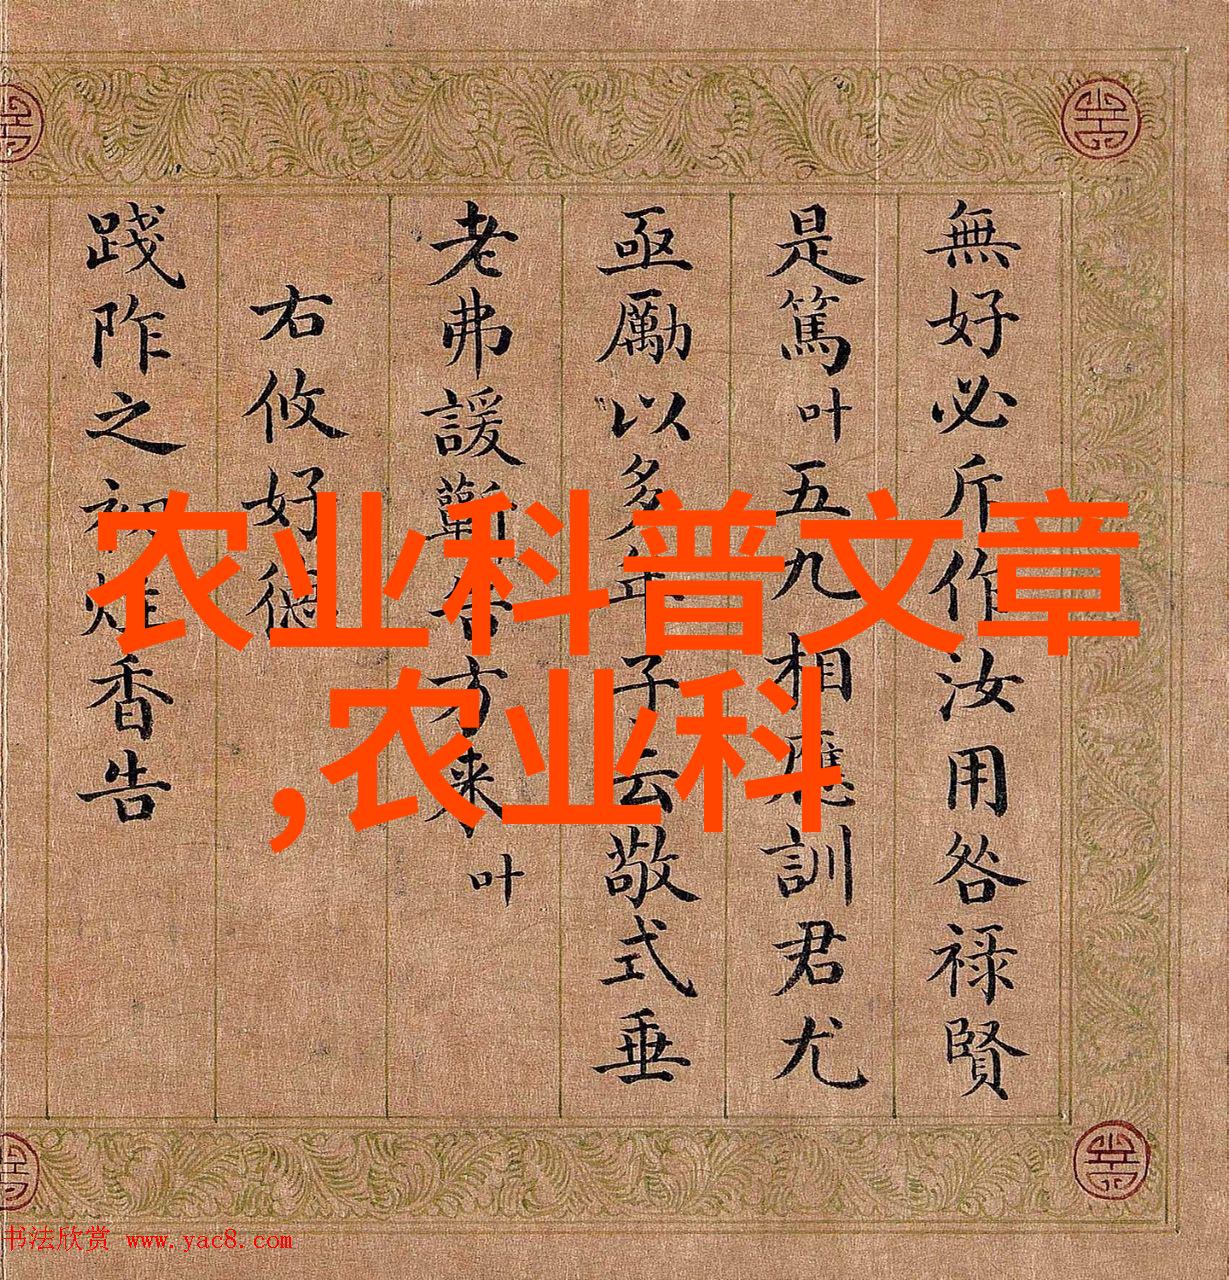 農业科普文章
,农业科
無好必斤作汝用咎禄賢
是篤叶五九相應訓君尤
亟勵以多年子云敬式垂
老弗諼蘄告方来叶
右攸好德
踐阼之初炷香告
书法欣赏 www.yac8.com